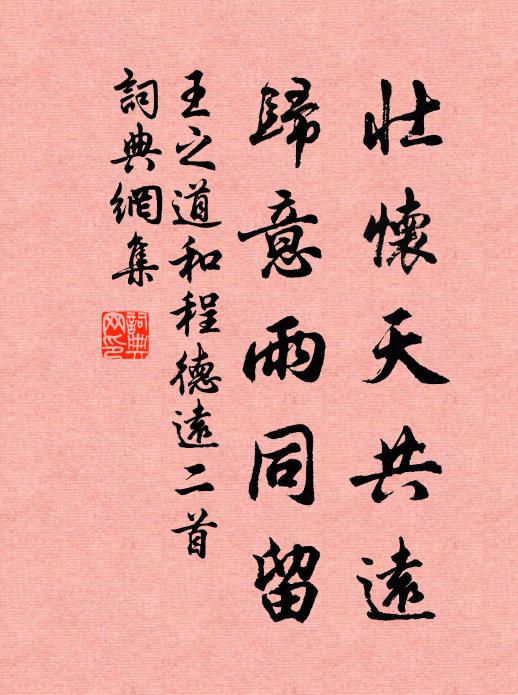 壯懷天共遠
歸意雨同留
王之道和程德遠二首
詞典網集
詞典網印